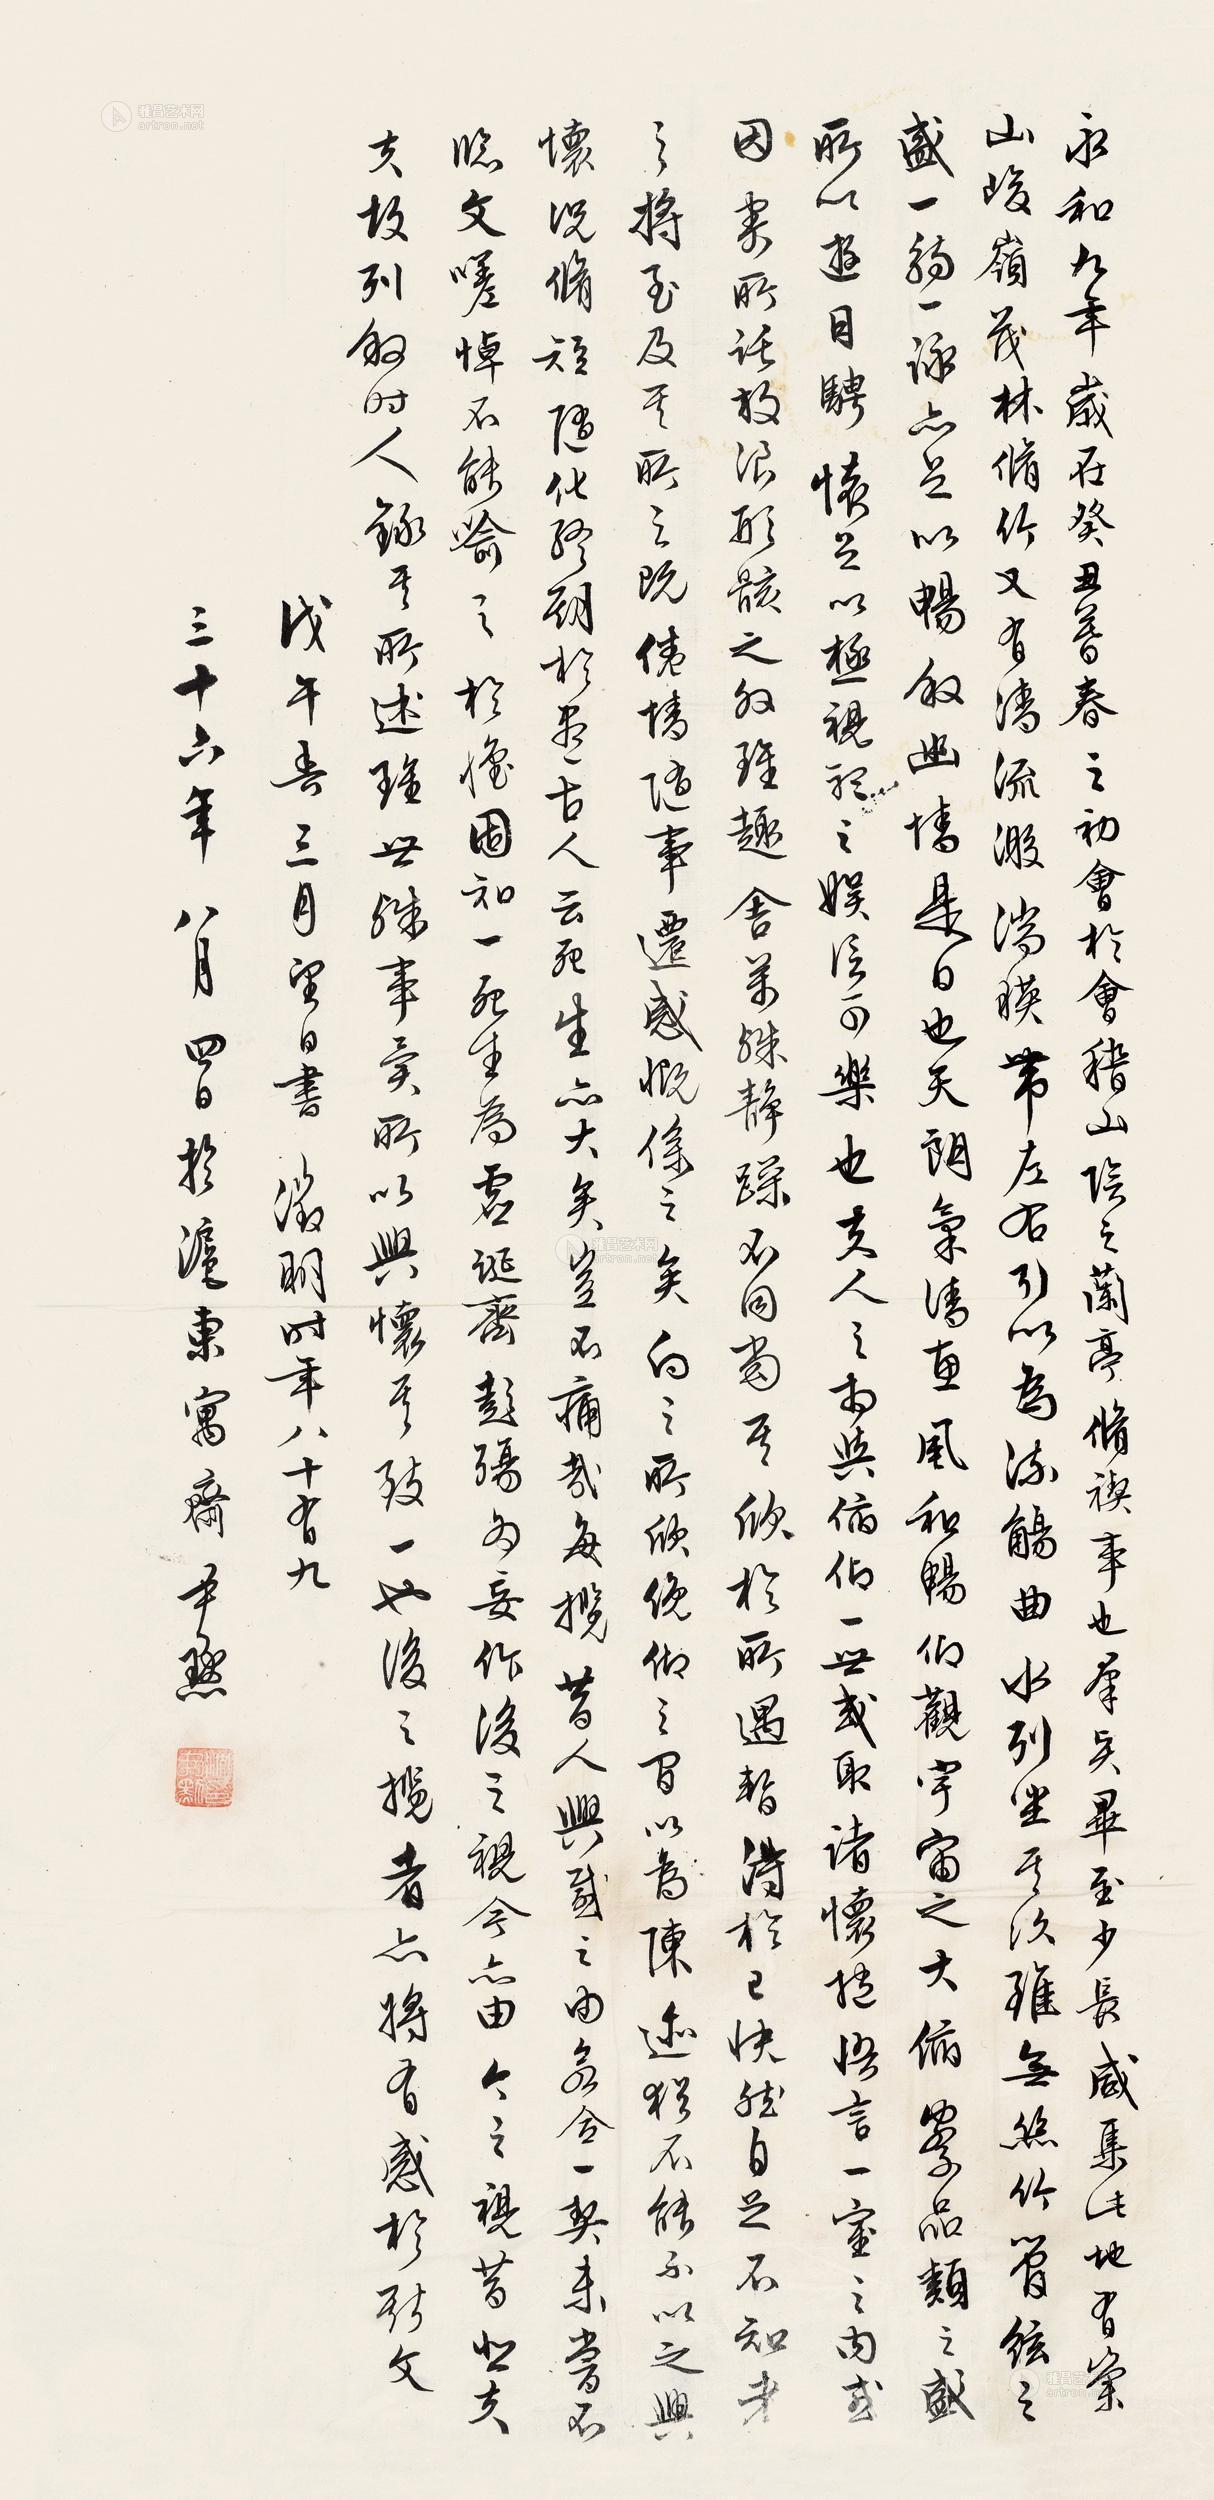 永和九年歲在癸丑暮春之初會於會稽山陰之蘭亭脩禊事也羣賢畢至少長咸集此地有崇
山峻嶺茂林脩竹又有清流激湍暎帶左右引以為流觴曲水列坐其次雖無絲竹管絃之
盛一觴一詠亦足以暢敘幽情是日也天朗氣清惠風和暢仰觀宇宙之大俯察品類之盛
所以遊目騁懷足以極視聽之娛信可樂也夫人之相與俯仰一世或取諸懷抱悟言一室之內或
因寄所託放浪形骸之外雖趣舍萬殊靜躁不同當其欣於所遇暫得於己快然自足不知老
之將至及其所之既倦情隨事遷感慨係之矣向之所欣俛仰之間以為陳迹猶不能不以之興
懷況脩短隨化終期於盡古人云死生亦大矣豈不痛哉每攬昔人興感之由若合一契未嘗不
臨文嗟悼不能喻之於懷固知一死生為虛誕齊彭殤為妄作後之視今亦由今之視昔悲夫
夫故列敘時人錄其所述雖世殊事異所以興懷其致一也後之攬者亦將有感於斯文
戊午春三月望日書 徵明時年八十有九
三十六年八月四日於滬東寓齋尹默
雅昌艺术网
artron.net
雅昌艺术网
artron.net
雅昌艺术网
artron.net